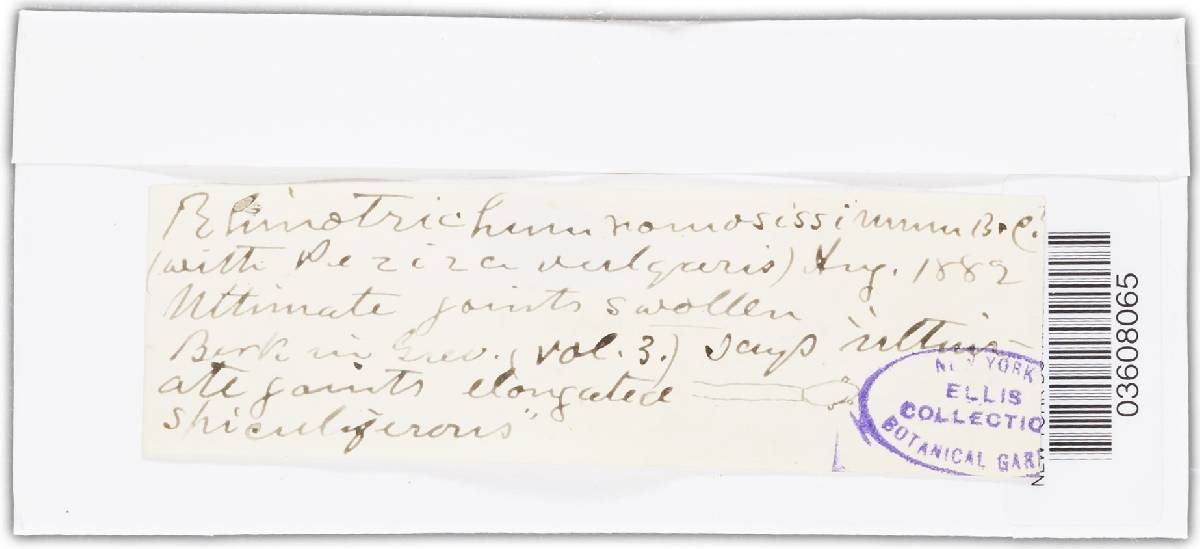 Rhinotrichum ramosissimum B.&C.
(with Peziza vulgaris) Aug. 1882
Ultimate joints swollen
Berk in Grev. (vol. 3.) says "ultim-
ate joints elongated
spiculiferous"
NEW YORK
ELLIS
COLLECTIO
BOTANICAL GAR
03608065